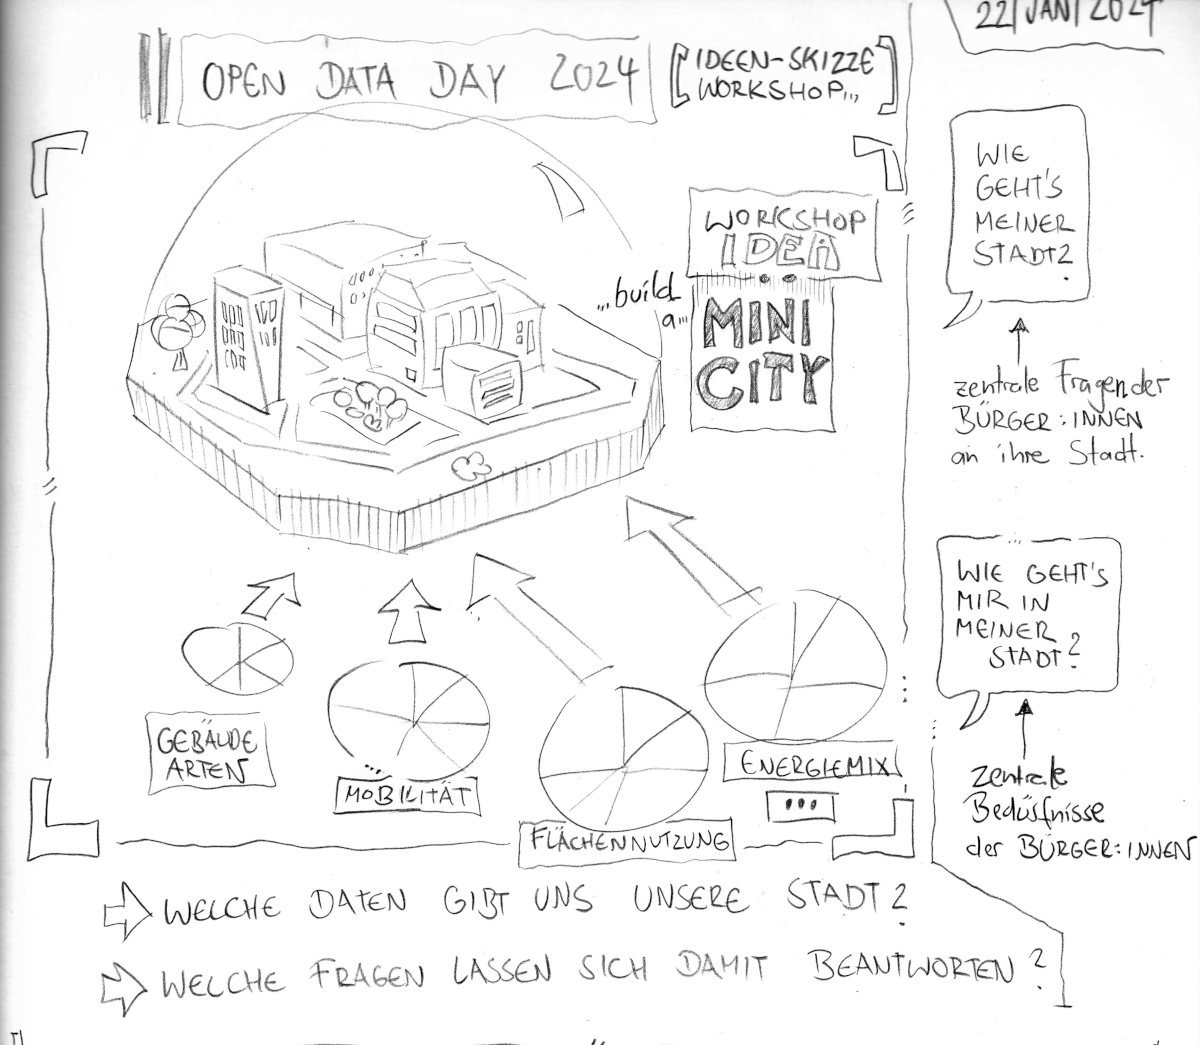 22|JAN|2024
OPEN DATA DAY 2024
[IDEEN-SKIZZE
WORKSHOP...]
WORKSHOP
IDEA
...build
a...
MINI
CITY
WIE
GEHT'S
MEINER
STADT?
zentrale Fragen der
BÜRGER:INNEN
an ihre Stadt.
...
WIE GEHT'S
MIR IN
MEINER
STADT?
zentrale
Bedürfnisse
der BÜRGER:INNEN
GEBÄUDE
ARTEN
...
MOBILITÄT
FLÄCHENNUTZUNG
ENERGIEMIX
...
WELCHE DATEN GIBT UNS UNSERE STADT?
WELCHE FRAGEN LASSEN SICH DAMIT BEANTWORTEN?